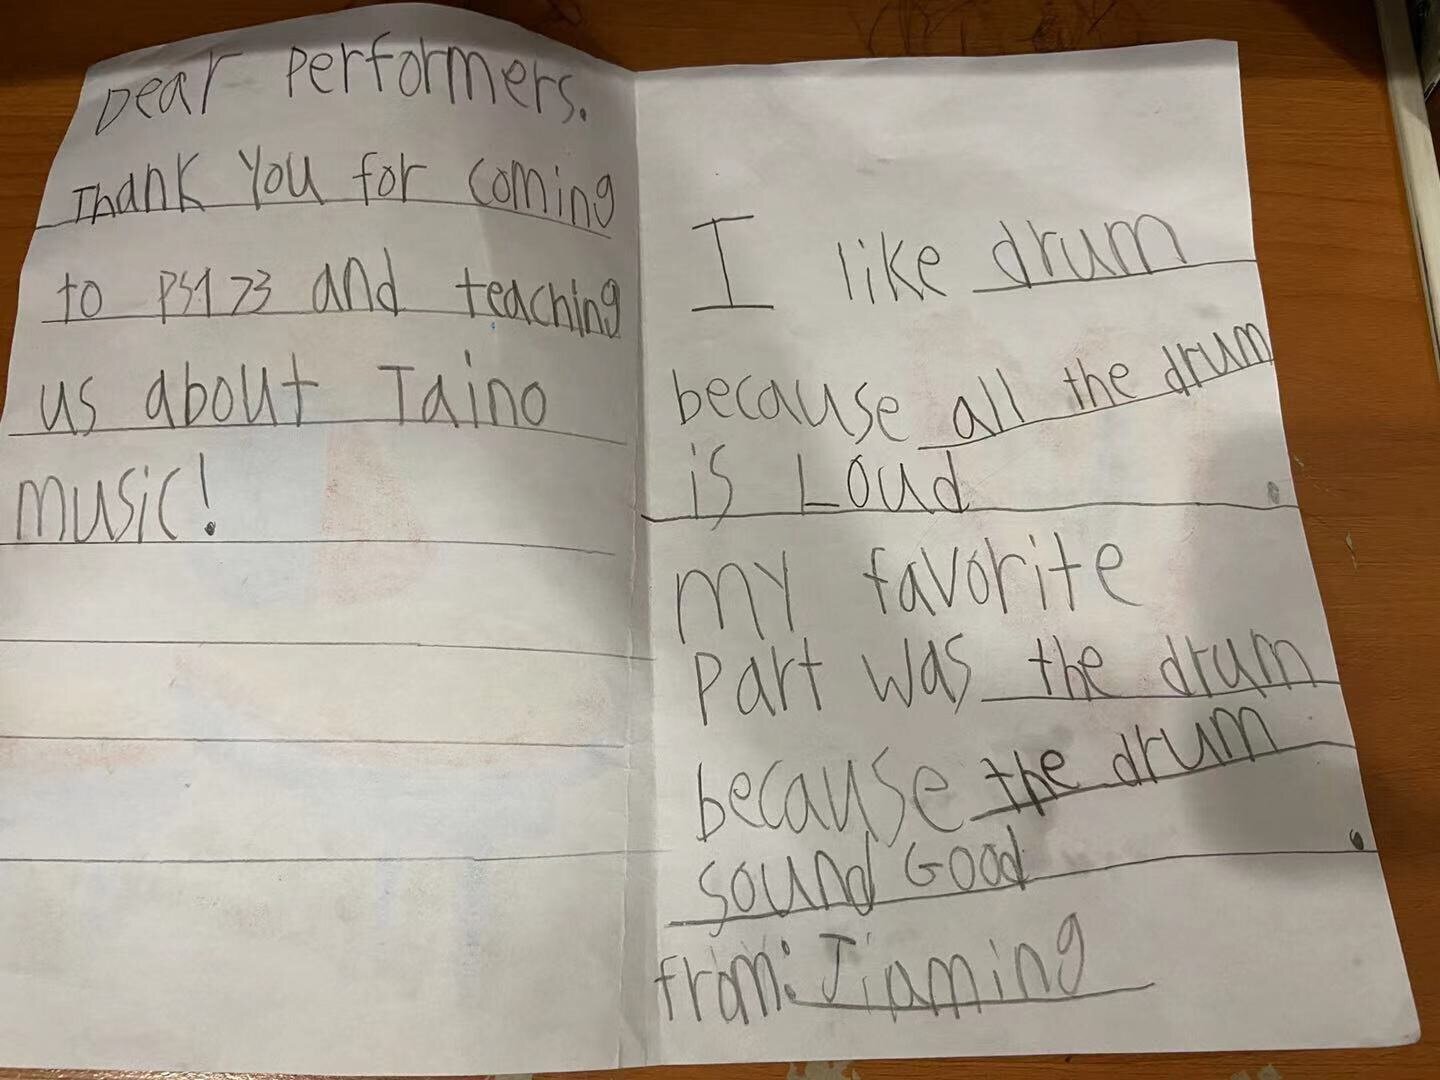 Dear Performers.
Thank You for coming
to PS173 and teaching
us about Taino
music!
I like drum
because all the drum
is Loud .
my favorite
Part was the drum
because the drum
sound Good .
from: Jiaming